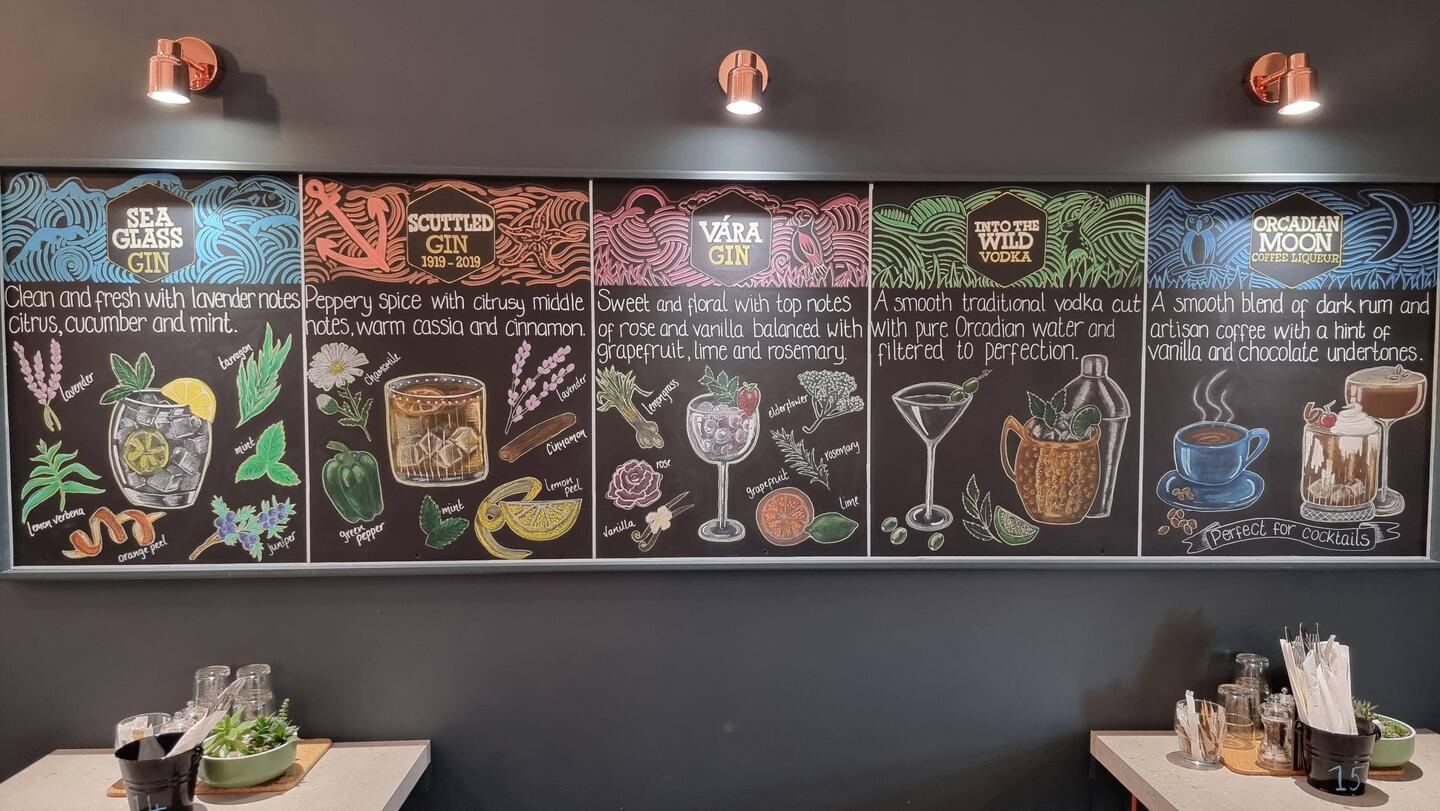 SEA
GLASS
GIN
Clean and fresh with lavender notes
citrus, cucumber and mint.
lavender
tarragon
mint
lemon verbena
orange peel
juniper
SCUTTLED
GIN
1919 - 2019
Peppery spice with citrusy middle
notes, warm cassia and cinnamon.
Chamomile
lavender
Cinnamon
green
pepper
mint
Lemon
peel
VÁRA
GIN
Sweet and floral with top notes
of rose and vanilla balanced with
grapefruit, lime and rosemary.
Lemongrass
elderflower
rose
rosemary
grapefruit
vanilla
lime
INTO THE
WILD
VODKA
A smooth traditional vodka cut
with pure Orcadian water and
filtered to perfection.
ORCADIAN
MOON
COFFEE LIQUEUR
A smooth blend of dark rum and
artisan coffee with a hint of
vanilla and chocolate undertones.
Perfect for cocktails
14
15